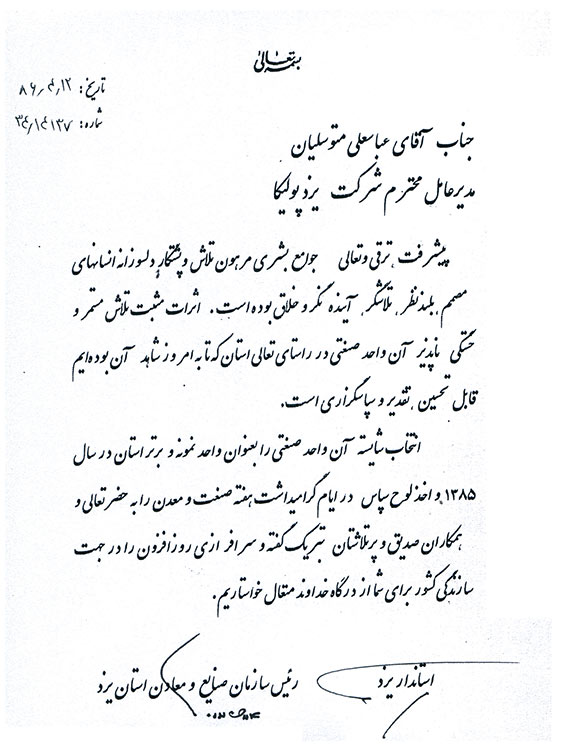 بسمه تعالی
تاریخ: ۸۶٫۴٫۱۲
جناب آقای عباسعلی متوسلیان
مدیرعامل محترم شرکت یزد پولیکا
پیشرفت، ترقی و تعالی جوامع بشری مرهون تلاش و پشتکار دلسوزانه انسانهای
مصمم، بلندنظر، تلاشگر، آینده نگر و خلاق بوده است. اثرات مثبت تلاش مستمر و
خستگی ناپذیر آن واحد صنعتی در راستای تعالی استان که تا به امروز شاهد آن بوده‌ایم
قابل تحسین، تقدیر و سپاسگزاری است.
انتخاب شایسته آن واحد صنعتی را بعنوان واحد نمونه و برتر استان در سال
۱۳۸۵ و اخذ لوح سپاس در ایام گرامیداشت هفته صنعت و معدن را به حضرتعالی و
همکاران صدیق و پرتلاشتان تبریک گفته و سرافرازی روزافزون را در جهت
سازندگی کشور برای شما از درگاه خداوند متعال خواستاریم.
استاندار یزد
رئیس سازمان صنایع و معادن استان یزد